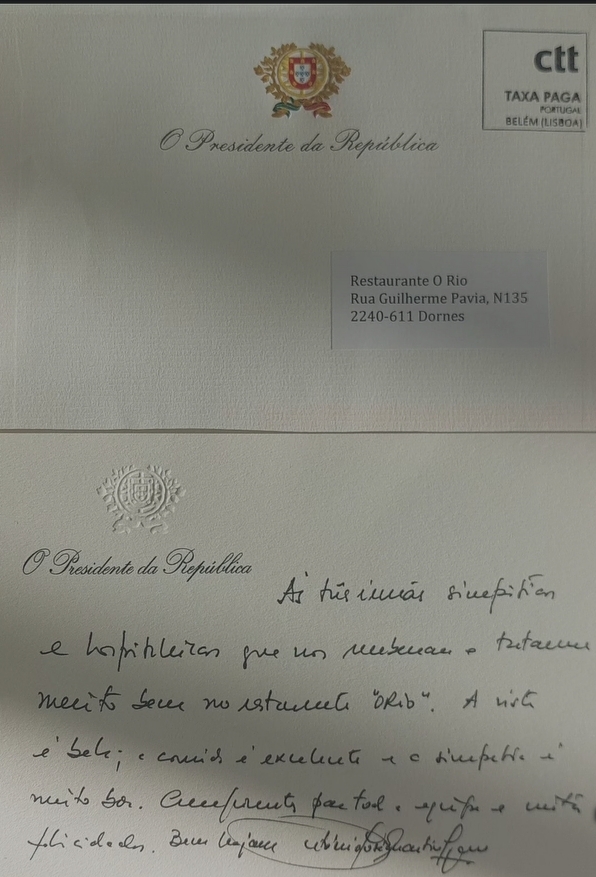 ctt
TAXA PAGA
PORTUGAL
BELÉM (LISBOA)
O Presidente da República
Restaurante O Rio
Rua Guilherme Pavia, N135
2240-611 Dornes
O Presidente da República
Às três irmãs simpáticas
e hospitaleiras que nos receberam e trataram
muito bem no restaurante "O Rio". A vista
é bela; a comida é excelente e a simpatia é
muito boa. Cumprimentos para toda a equipa e muitas
felicidades. Bem hajam